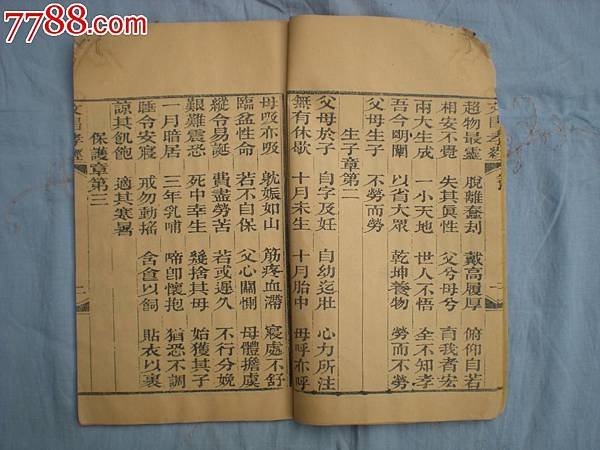 7788.com
文昌孝經
超物最靈 脫離蠢刦 戴高履厚 俯仰自若
相安不覺 失其眞性 父兮母兮 育我者宏
兩大生成 一小天地 世人不悟 全不知孝
吾今明闡 以省大眾 乾坤養物 勞而不勞
父母生子 不勞而勞
生子章第二
父母於子 自字及妊 自幼迄壯 心力所注
無有休歇 十月未生 十月胎中 母呼亦呼
母吸亦吸 躭娠如山 筋疼血滯 寢處不舒
臨盆性命 若不自保 父心關惻 母體擔虞
縱令易誕 費盡勞苦 若或遲久 不行分娩
艱難震恐 死中幸生 幾捨其母 始獲其子
一月暗居 三年乳哺 啼卽懷抱 猶恐不調
睡令安寢 戒勿動搖 含食以飼 貼衣以裹
諒其飢飽 適其寒暑
保護章第三
文昌孝經 二